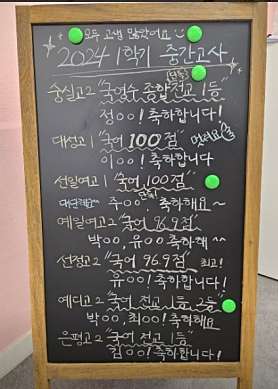 모두 고생 많았어요
2024 1학기 중간고사
단독
숭실고2 "국영수 종합전교 1등"
정○○! 축하합니다!
대성고1 "국어 100점" 멋져요
이○○! 축하합니다
선일여고1 "국어 100점"
단독
대단해요~ 주○○! 축하해요~
예일여고2 "국어 96.9점"
박○○, 유○○ 축하해^^
선정고2 "국어 96.9점" 최고!
유○○! 축하합니다!
예디고2 "국어 전교 1등, 2등"
박○○, 최○○! 축하해요
은평고2 "국어 전교 1등"
김○○! 축하합니다!